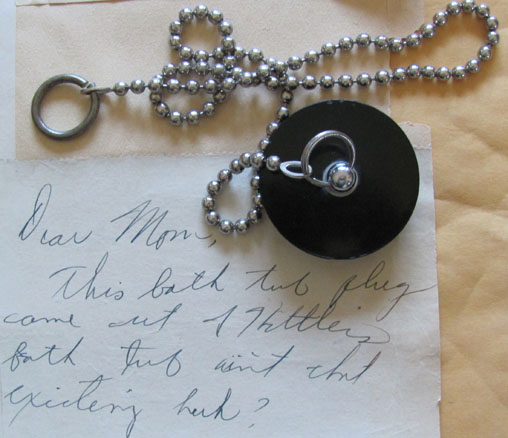 Dear Mom,
This bath tub plug
came out of Hittler's
bath tub ain't that
exicteing huh?